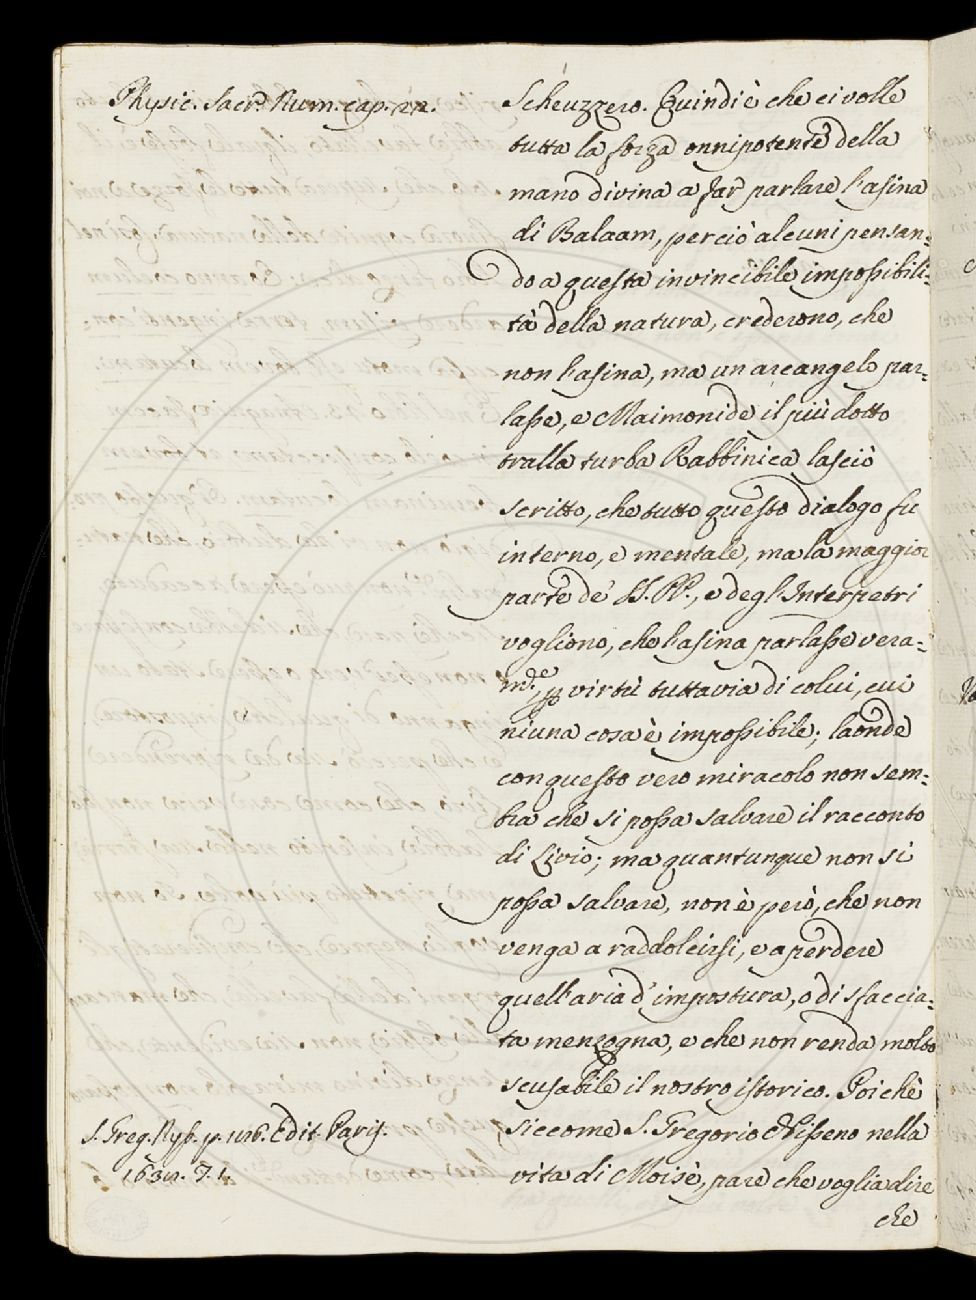 Physic. Sacr. Num. cap. 22.
Scheuzzero. Quindi è che ci volle
tutta la forza onnipotente della
mano divina a far parlare l'asina
di Balaam, perciò alcuni pensan=
do a questa invincibile impossibili=
tà della natura, crederono, che
non l'asina, ma un arcangelo par=
lasse, e Maimonide il più dotto
tralla turba Rabbinica lasciò
scritto, che tutto questo dialogo fu
interno, e mentale, ma la maggior
parte de' SS. PP., e degl'Interpetri
vogliono, che l'asina parlasse vera=
mde, p virtù tuttavia di colui, cui
niuna cosa è impossibile; laonde
con questo vero miracolo non sem=
bra che si possa salvare il racconto
di Livio; ma quantunque non si
possa salvare, non è però, che non
venga a raddolcirsi, e a perdere
quell'aria d'impostura, o di sfaccia=
ta menzogna, e che non renda molto
scusabile il nostro istorico. Poichè
siccome S. Gregorio Nisseno nella
vita di Moisè, pare che voglia dire
che
S. Greg. Nyss. p. Edit. Paris.
T. 1.